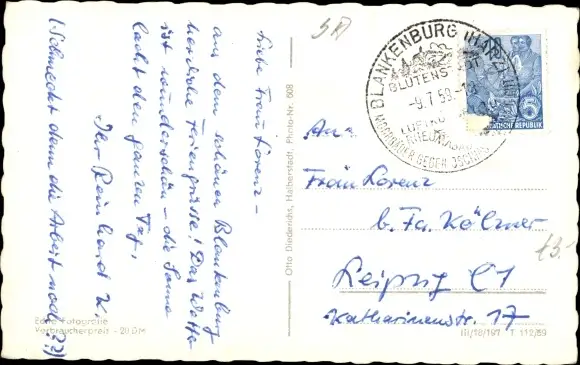 Liebe Frau Lorenz –
aus dem schönen Blankenburg
herzliche Feriengrüsse! Das Wetter
ist wunderschön – die Sonne
lacht den ganzen Tag.
Ihr Reinhardt K.
(Schmeckt denn die Arbeit noch??)
Echte Fotografie
Verbraucherpreis - 20 DM
Otto Diederichs, Halberstadt, Photo-Nr. 608
BLANKENBURG (HARZ)
BLÜTENSTADT
-9.7.59.-18
LUFTKU
MOORBÄDER GEGEN ISCHIAS
RHEUMA
DEUTSCHE REPUBLIK
5
An:
Frau Lorenz
b. Fa. Kölzner
Leipzig C1
Katharinenstr. 17
III/18/197 T 112/59